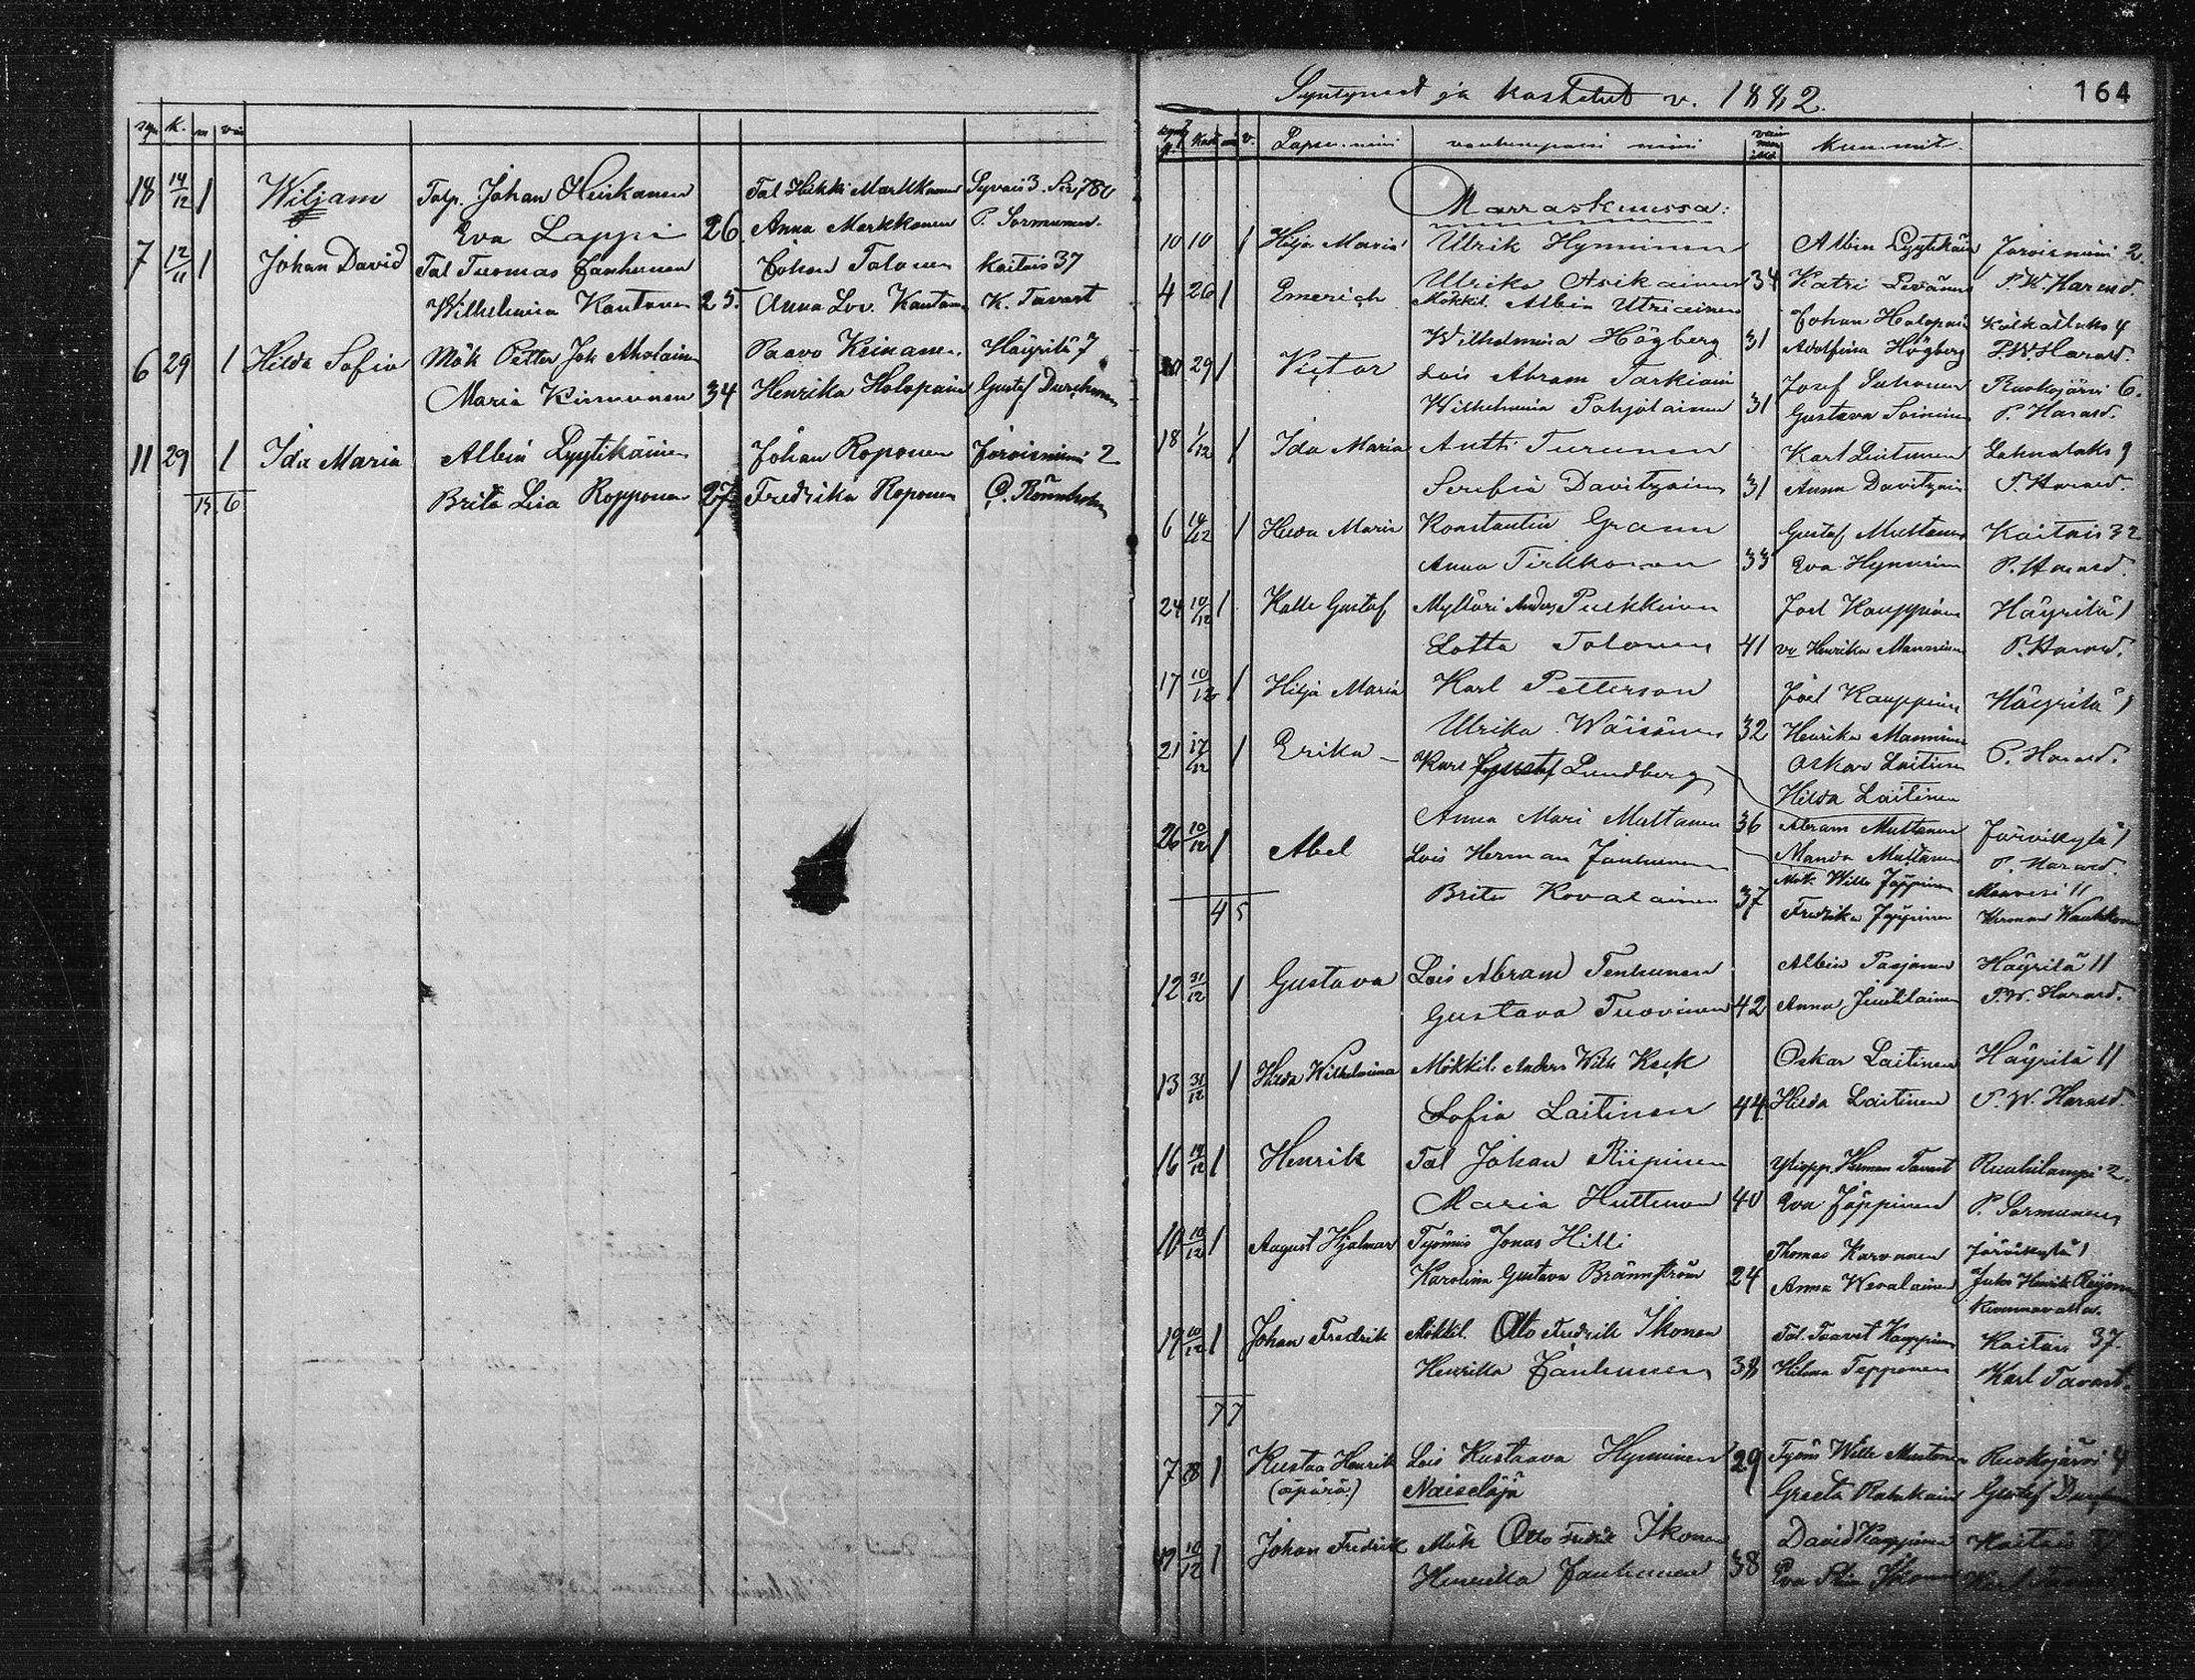 syn. k. m v
18 14/12 1 Wiljam Talp. Johan Heiskanen Tal Heikki Markkanen Syväis 3.
Eva Lappi 26. Anna Markkanen P. Sormunen.
7 12/11 1 Johan David Tal Tuomas Janhunen Johan Tolonen Kaitais 37
Wilhelmina Kautonen 25. Anna Lov. Kautonen K. Tavast
6 29 1 Hilda Sofia Mök Petter Joh Aholainen Paavo Keinanen Häyrilä 7
Maria Kinnunen 34 Henrika Holopainen Gustaf
11 29 1 Ida Maria Albin Lyytikäinen Johan Roponen Joroisniemi 2
Brita Lisa Ropponen 27 Fredrika Roponen Rönnholm
15 6
Syntyneet ja kastetut v. 1882.
164
Lapsen nimi vanhempain nimi vaimon ikä kummit.
Marraskuussa:
10 10 1 Hilja Maria Ulrik Hynninen Albin Lyytikäin Joroisniemi 2.
Ulrika Asikainen 34 Katri P. W. Harald.
4 26 1 Emerich Mökkil. Albin Utriainen Johan Holopain 4
Wilhelmina Högberg 31 Adolfina Högberg P. W. Harald.
29 1 Victor Lois Abram Tarkiain Josef Ruokojärvi 6.
Wilhelmina Pohjolainen 31 Gustava Soininen P. Harald.
18 1/12 1 Ida Maria Antti Turunen Karl Lahnalaks 9
Serafia Davitzain 31 Anna Davitzain P. Harald.
6 14/12 1 Hilda Maria Konstantin Grann Gustaf Muttonen Kaitais 32
Anna Tirkkonen 33 Eva Hynninen P. Harald.
24 10/12 1 Kalle Gustaf Mylläri Anders Pulkkinen Joel Kauppinen Häyrilä 1
Lotta Tolonen 41 vv Henrika Manninen P. Harald.
17 10/12 1 Hilja Maria Karl Petterson Joel Kauppinen Häyrilä 1
Ulrika Wäisänen 32 Henrika Manninen
21 17/12 1 Erika Karl Gustaf Lundberg Oskar Laitinen P. Harald.
Hilda Laitinen
Anna Mari Muttonen 36 Abram Muttonen Järvikylä 1
26 10/12 1 Abel Lois Herman Janhunen Manda Muttonen P. Harald.
Mök Wille Jäppinen Maavesi 11
Brita Kovalainen 37 Fredrika Jäppinen Herman Waukkonen
4 5
12 31/12 1 Gustava Lois Abram Tenhunen Albin Pasjanen Häyrilä 11
Gustava Tuovinen 42 Anna Juutilainen P. W. Harald.
13 31/12 1 Hilda Wilhelmina Mökkil. Anders Wilh Keck Oskar Laitinen Häyrilä 11
Sofia Laitinen 44 Hilda Laitinen P. W. Harald.
16 14/12 1 Henrik Tal Johan Riipinen Yliopp. Herman Tavast Ruuhilampi 2.
Maria Huttunen 40 Eva Jäppinen P. Sormunen
10 10/12 1 August Hjalmar Työmies Jonas Hilli Thomas Karvonen Järvikylä 1
Karolina Gustava Brännström 24 Anna Wesalainen Juho Henrik Reijonen
Kuvunavalla.
19 10/12 1 Johan Fredrik Mökkil. Otto Fredrik Ikonen Tal. Taavet Kauppinen Kaitais 37.
Henrikka Janhunen 38 Hilma Tepponen Karl Tavast.
7 7
7 28 1 Kustaa Henrik Lois Kustaava Hynninen 29 Työmies Wille Mustonen Ruokojärvi 4
(äpärä) Naiseläjä Greeta Gustaf
19 10/12 1 Johan Fredrik Mök Otto Fredrik Ikonen David Kauppinen Kaitais
Henrikka Janhunen 38 Eva